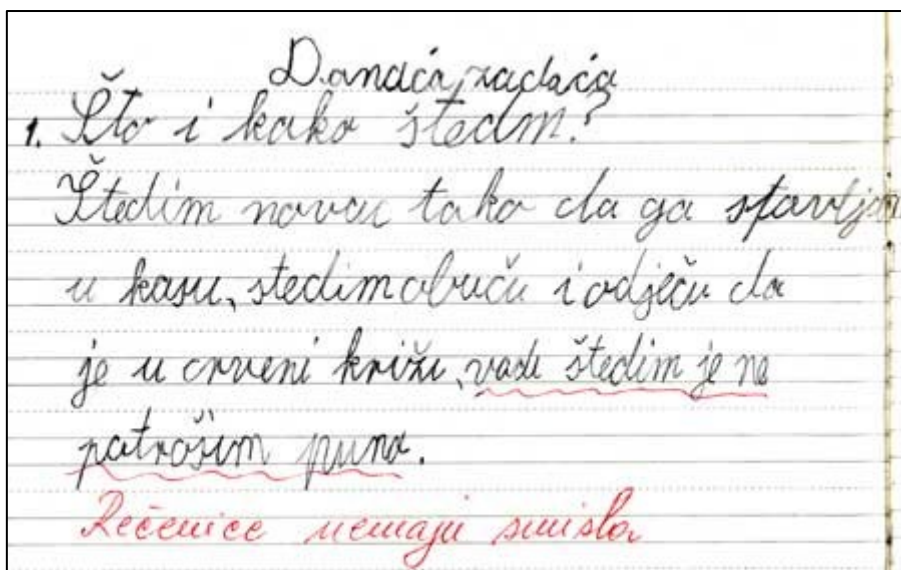 Domaća zadaća
1. Što i kako štedim?
Štedim novac tako da ga stavljam
u kasu, stedim obuču i odječu da
je u crveni križi, vodu štedim je ne
potrošim puno.
Rečenice nemaju smisla